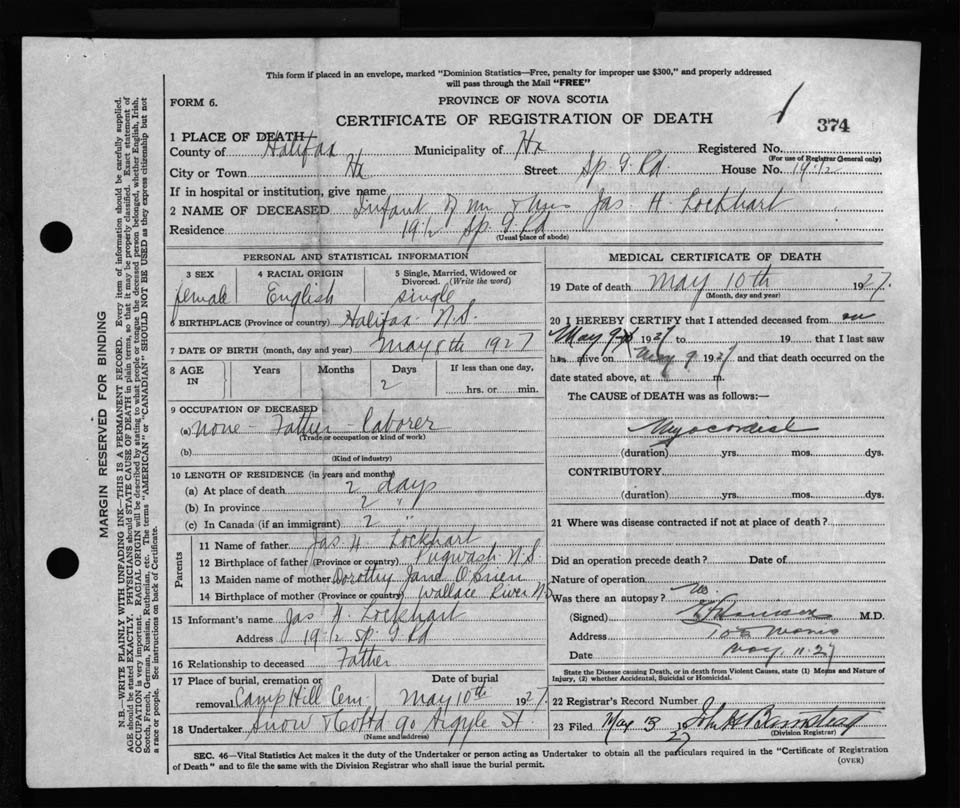 This form if placed in an envelope, marked "Dominion Statistics—Free, penalty for improper use $300," and properly addressed
will pass through the Mail "FREE"
FORM 6.
PROVINCE OF NOVA SCOTIA
CERTIFICATE OF REGISTRATION OF DEATH
374
1 PLACE OF DEATH
County of Halifax Municipality of Hx Registered No.
(For use of Registrar General only)
City or Town Hx Street Sp. G. Rd House No. 19 1/2
If in hospital or institution, give name
2 NAME OF DECEASED Infant of Mr & Mrs Jas. H. Lockhart
Residence 19 1/2 Sp. G Rd
(Usual place of abode)
PERSONAL AND STATISTICAL INFORMATION
3 SEX 4 RACIAL ORIGIN 5 Single, Married, Widowed or Divorced. (Write the word)
female English single
6 BIRTHPLACE (Province or country) Halifax N.S.
7 DATE OF BIRTH (month, day and year) May 8th 1927
8 AGE IN Years Months Days If less than one day,
2 hrs. or min.
9 OCCUPATION OF DECEASED
(a) none - Father - laborer
(Trade or occupation or kind of work)
(b)
(Kind of industry)
10 LENGTH OF RESIDENCE (in years and months)
(a) At place of death 2 days
(b) In province 2 "
(c) In Canada (if an immigrant) 2 "
Parents
11 Name of father Jas H. Lockhart
12 Birthplace of father (Province or country) Pugwash N.S
13 Maiden name of mother Dorothy Jane O'Brien
14 Birthplace of mother (Province or country) Wallace River NS
15 Informant's name Jas H Lockhart
Address 19 1/2 Sp. G Rd
16 Relationship to deceased Father
17 Place of burial, cremation or removal Date of burial
Camp Hill Cem. May 10th 1927
18 Undertaker Snow & Co Ltd 90 Argyle St.
(Name and address)
MEDICAL CERTIFICATE OF DEATH
19 Date of death May 10th 1927.
(Month, day and year)
20 I HEREBY CERTIFY that I attended deceased from on
May 9 1927 to 19 that I last saw
h alive on May 9 1927 and that death occurred on the
date stated above, at m.
The CAUSE of DEATH was as follows:—
Myocardial
(duration) yrs. mos. dys.
CONTRIBUTORY
(duration) yrs. mos. dys.
21 Where was disease contracted if not at place of death?
Did an operation precede death? Date of
Nature of operation
Was there an autopsy? No.
(Signed) M.D.
Address
Date May 11. 27
State the Disease causing Death, or in death from Violent Causes, state (1) Means and Nature of
Injury, (2) whether Accidental, Suicidal or Homicidal.
22 Registrar's Record Number
23 Filed May 13 1927 John H
(Division Registrar)
SEC. 46—Vital Statistics Act makes it the duty of the Undertaker or person acting as Undertaker to obtain all the particulars required in the "Certificate of Registration
of Death" and to file the same with the Division Registrar who shall issue the burial permit.
(OVER)
MARGIN RESERVED FOR BINDING
N.B.—WRITE PLAINLY WITH UNFADING INK—THIS IS A PERMANENT RECORD. Every item of information should be carefully supplied.
AGE should be stated EXACTLY. PHYSICIANS should STATE CAUSE OF DEATH in plain terms, so that it may be properly classified. Exact statement of
OCCUPATION is very important. RACIAL ORIGIN will be described by stating to what people or tongue the deceased person belonged, whether English, Irish,
Scotch, French, German, Russian, Ruthenian, etc. The terms "AMERICAN" or "CANADIAN" SHOULD NOT BE USED as they express citizenship but not
a race or people. See instructions on back of Certificate.